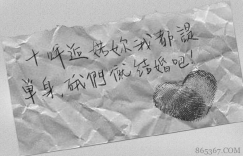 十年後 如果妳我都還
單身，我們就結婚吧！
865367.COM